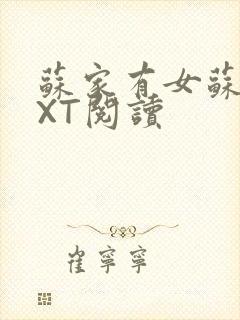 蘇家有女蘇
XT閱讀
崔寧寧